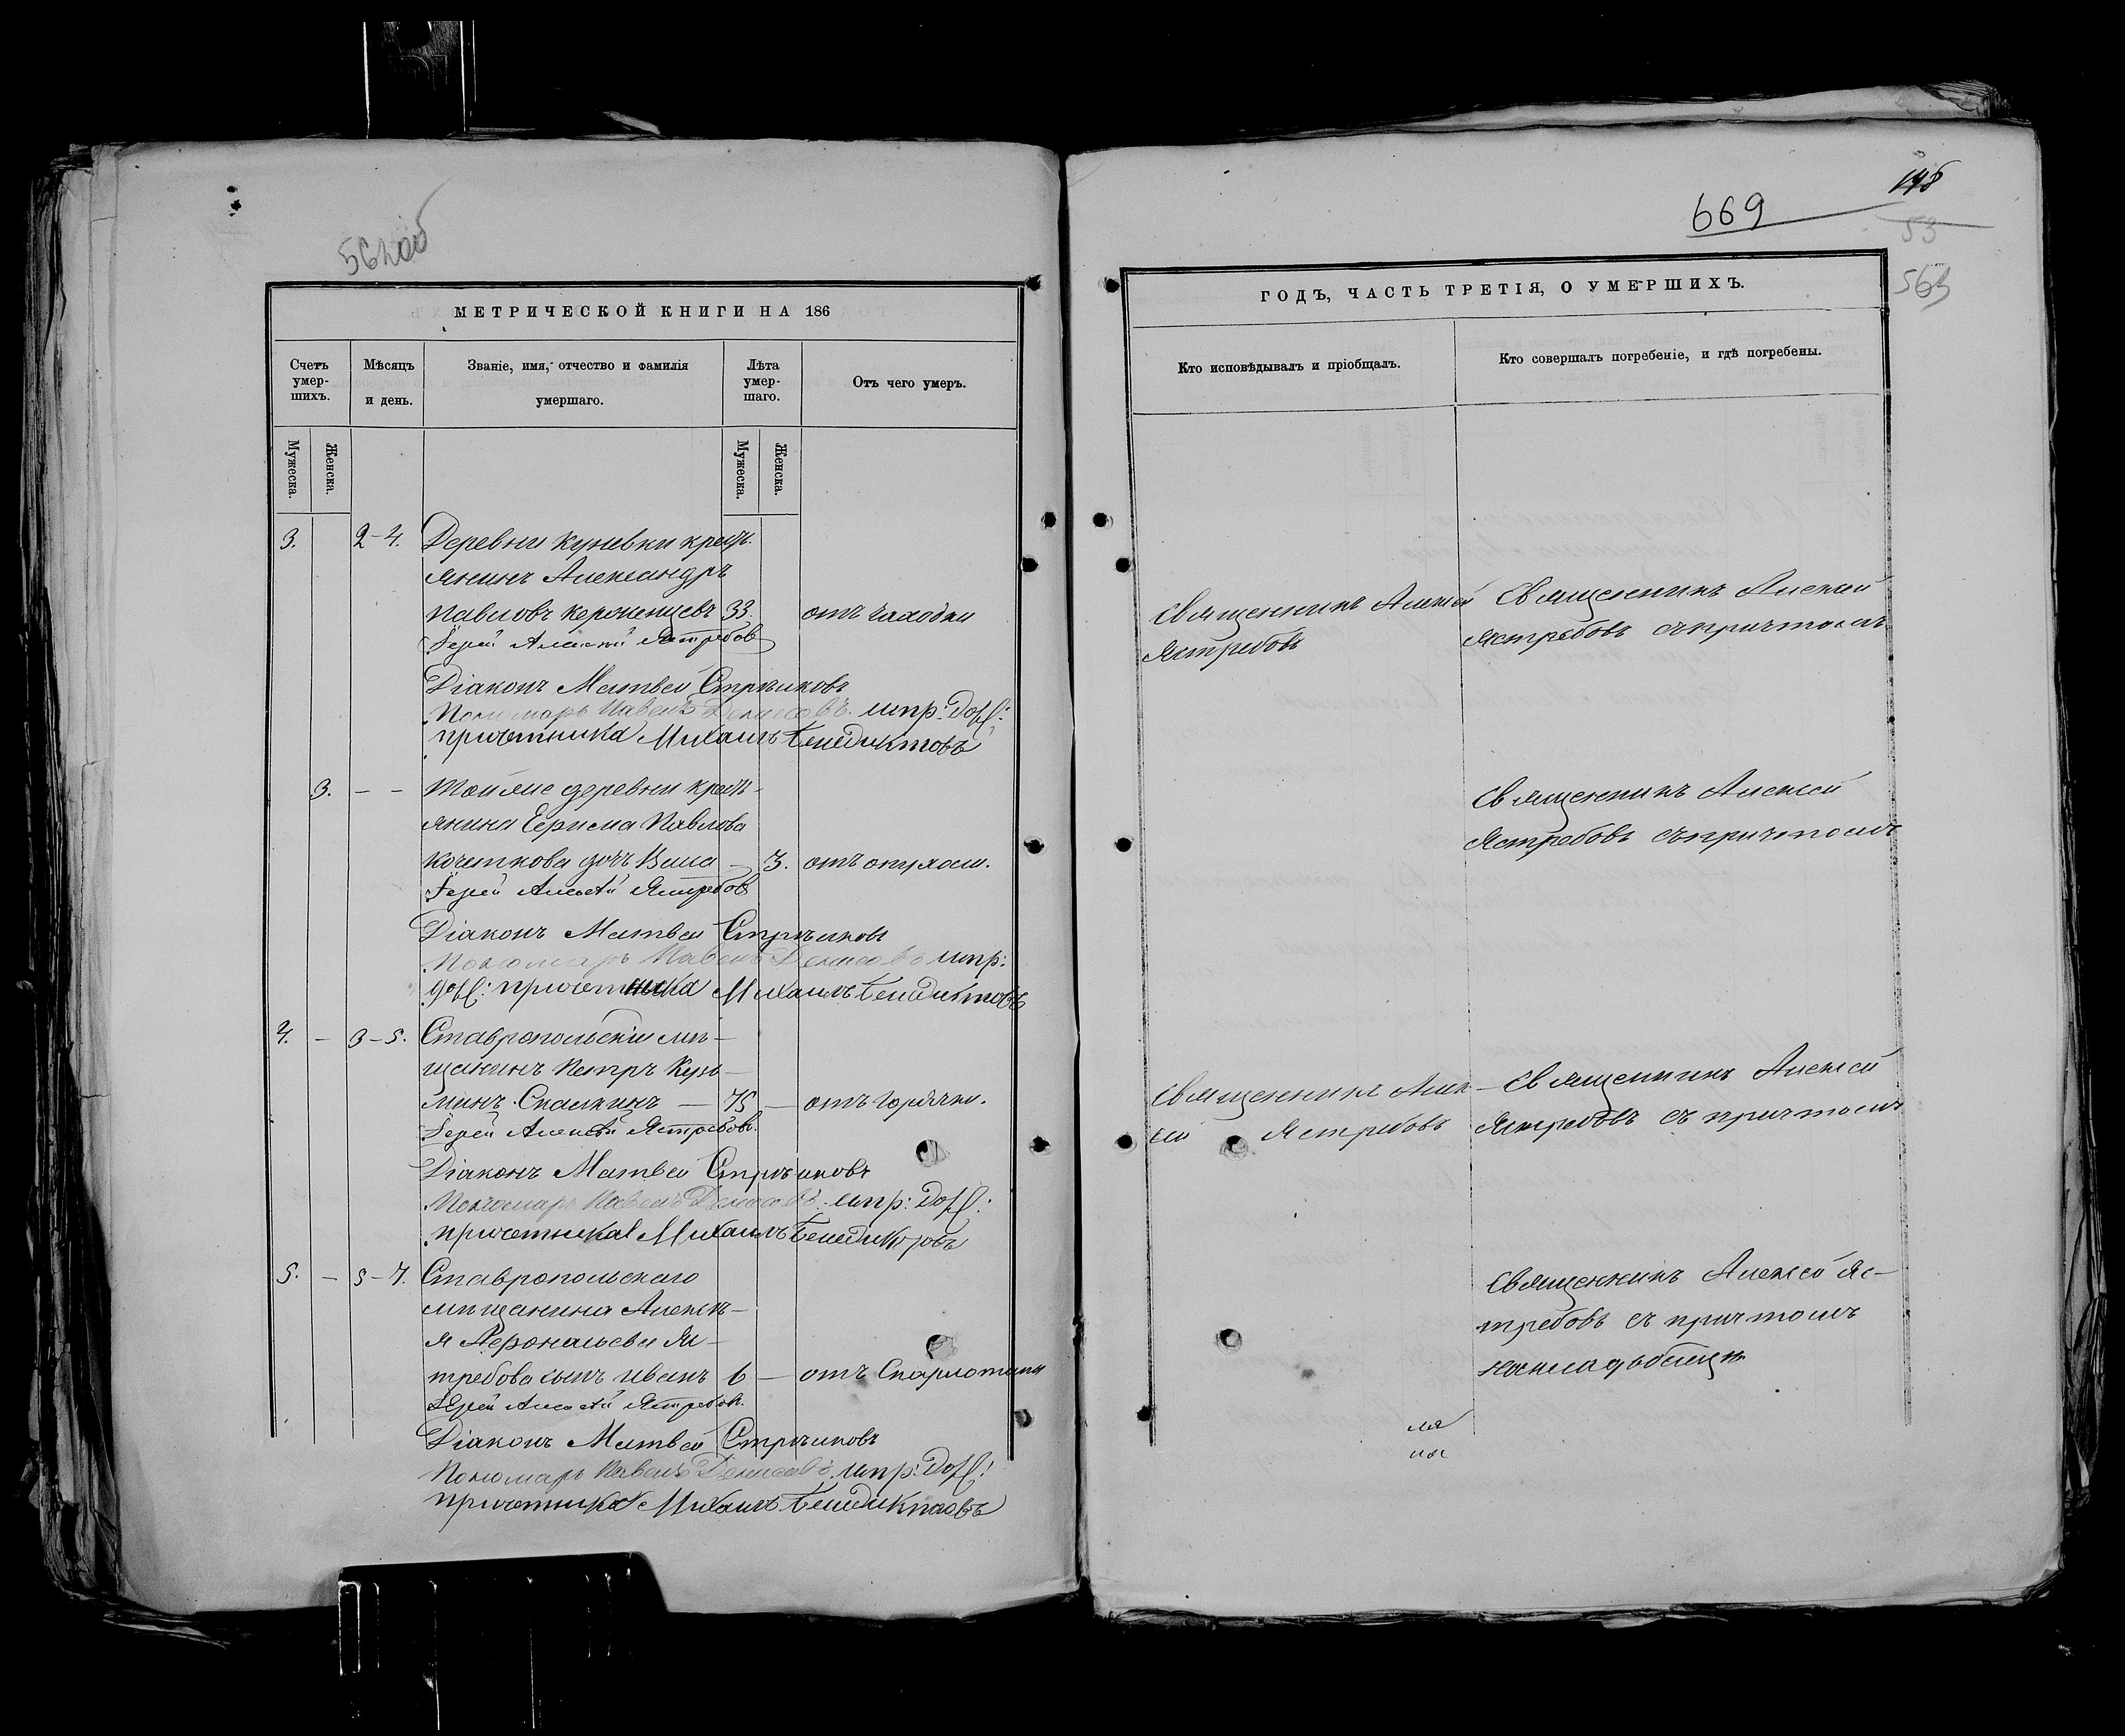 562об
МЕТРИЧЕСКОЙ КНИГИ НА 186
Счетъ умер-шихъ.
Мѣсяцъ и день.
Званіе, имя, отчество и фамилія умершаго.
Лѣта умер-шаго.
Отъ чего умеръ.
Мужеска.
Женска.
Мужеска.
Женска.
3. 2-4. Деревни Куневки кресть
янинъ Александръ
Павловъ Керженцевъ 33. отъ чахотки
Іерей Алексѣй Ястребовъ
Діаконъ Матвей Стрѣлковъ
Пономарь Павелъ Денисовъ. испр: долж:
причетника Михаилъ Бенедиктовъ
3. - - Той же деревни кресть-
янина Павлова
Кочеткова дочь - 3. отъ
Іерей Алексѣй Ястребовъ
Діаконъ Матвей Стрѣлковъ
Пономарь Павелъ Денисовъ испр:
долж: причетника Михаилъ Бенедиктовъ
4. - 3-5. Ставропольскій мѣ-
щанинъ Петръ Кузь-
минъ Скалкинъ - 75 - отъ горячки.
Іерей Алексѣй Ястребовъ.
Діаконъ Матвей Стрѣлковъ
Пономарь Павелъ Денисовъ. испр: долж:
причетника Михаилъ Бенедиктовъ
5. - 5-7. Ставропольскаго
мѣщанина Алексѣ-
я Яс-
требова сынъ Иванъ 6 - отъ Скарлотины
Іерей Алексѣй Ястребовъ.
Діаконъ Матвей Стрѣлковъ
Пономарь Павелъ Денисовъ. испр: долж:
причетника Михаилъ Бенедиктовъ
148
669
53
563
ГОДЪ, ЧАСТЬ ТРЕТІЯ, О УМЕРШИХЪ.
Кто исповѣдывалъ и пріобщалъ.
Кто совершалъ погребеніе, и гдѣ погребены.
Священникъ Алексей
Ястребовъ
Священникъ Алексей
Ястребовъ съ причтомъ
Священникъ Алексей
Ястребовъ съ причтомъ
Священникъ Алек-
сей Ястребовъ
Священникъ Алексей
Ястребовъ съ причтомъ
Священникъ Алексей Яс-
требовъ съ причтомъ
на кладьбищѣ